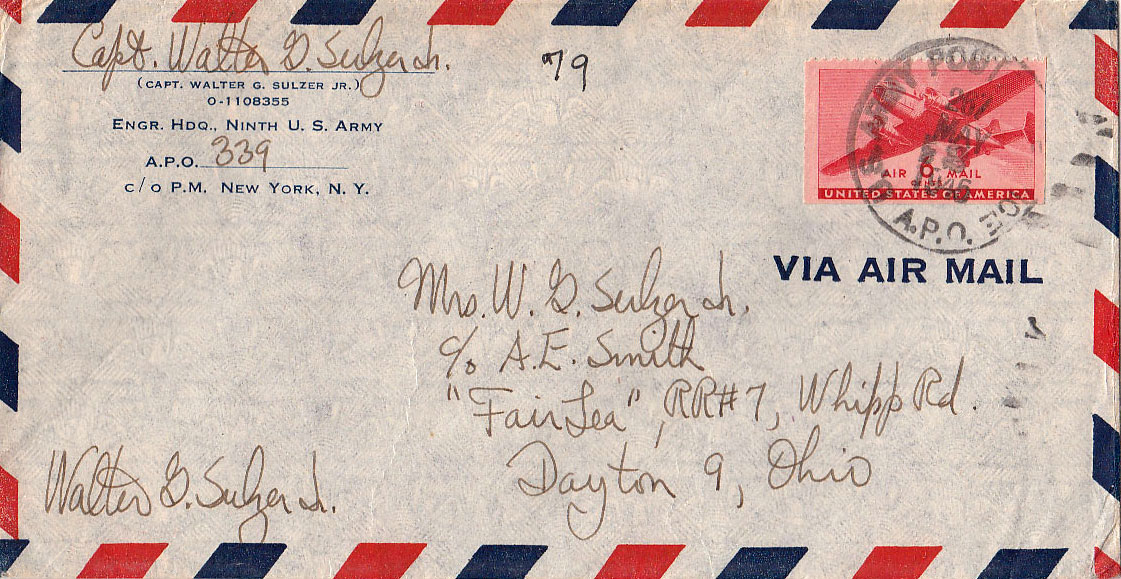 Capt. Walter G. Sulzer Jr.
(CAPT. WALTER G. SULZER JR.)
O-1108355
ENGR. HDQ., NINTH U. S. ARMY
A.P.O. 339
C/O P.M. NEW YORK, N. Y.
79
AIR 6¢ MAIL
UNITED STATES OF AMERICA
U.S. ARMY POSTAL
MAY
1945
A.P.O.
VIA AIR MAIL
Mrs. W. G. Sulzer Jr.
c/o A.E. Smith
"Fair Lea", RR#7, Whipp Rd.
Dayton 9, Ohio
Walter G. Sulzer Jr.